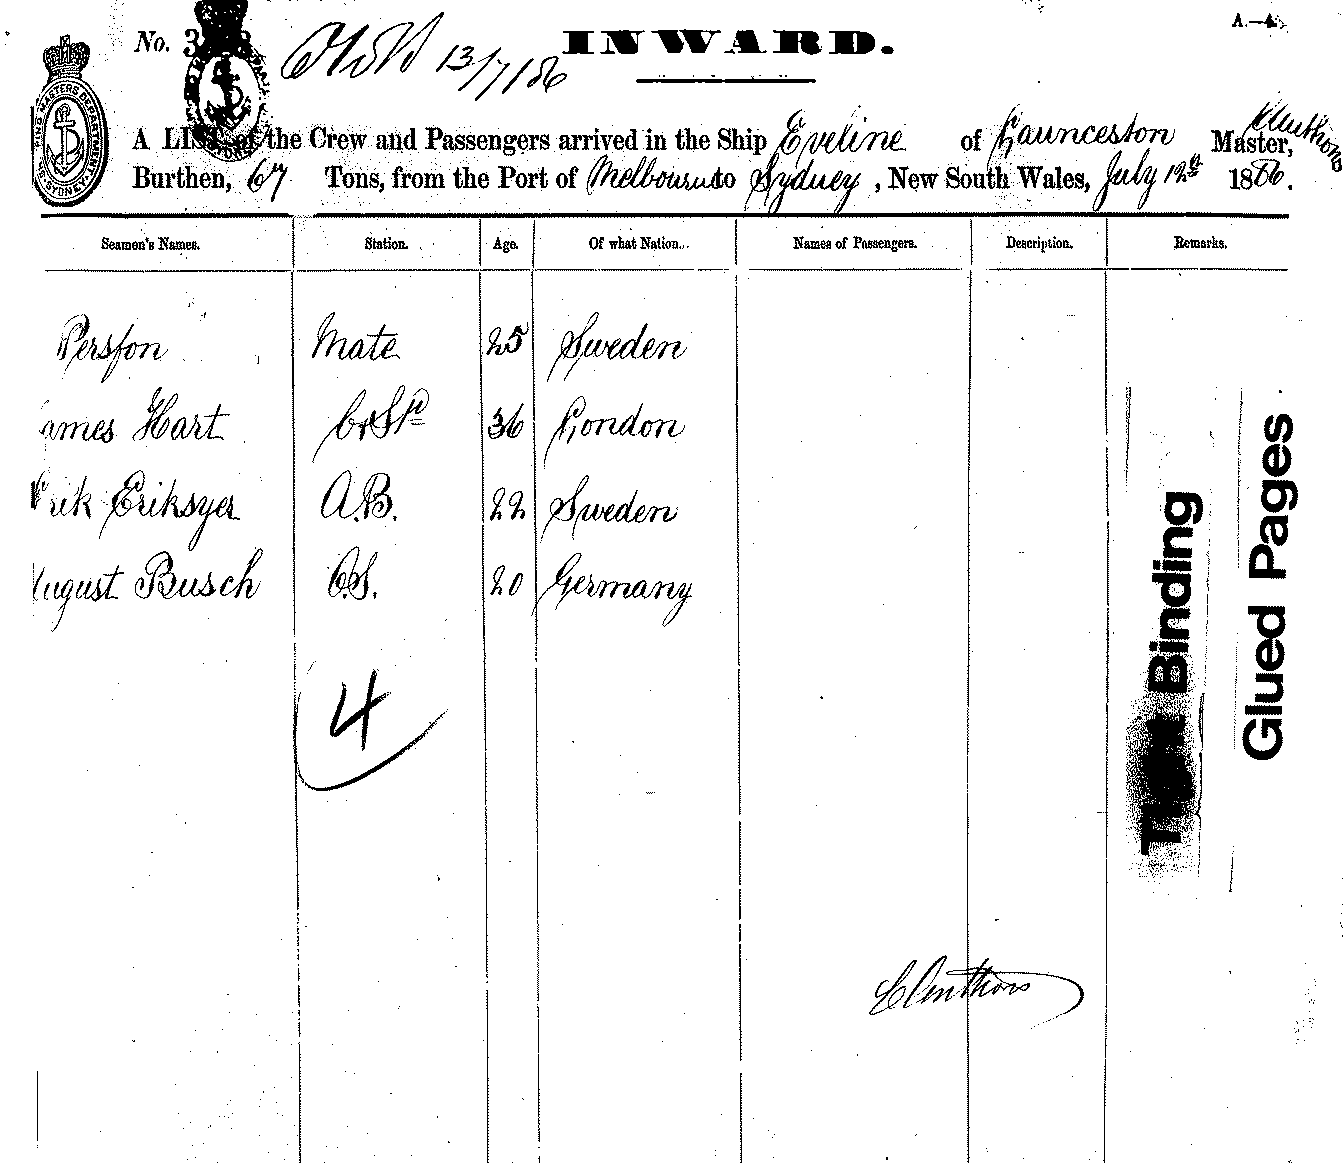 A.—4.
No. 3
13/7/86
INWARD.
A LIST of the Crew and Passengers arrived in the Ship Eveline of Launceston Master,
Burthen, 67 Tons, from the Port of Melbourne to Sydney, New South Wales, July 12th 1886.
Seamen's Names. Station. Age. Of what Nation. Names of Passengers. Description. Remarks.
Persson Mate 25 Sweden
ames Hart 36 London
rik A.B. 22 Sweden
ugust Busch O.S. 20 Germany
4
Binding
Glued Pages